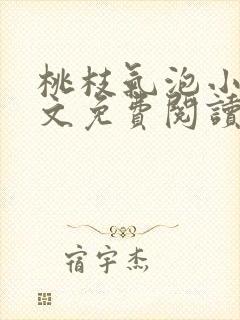 桃枝氣泡小
文免費閱讀
宿宇杰